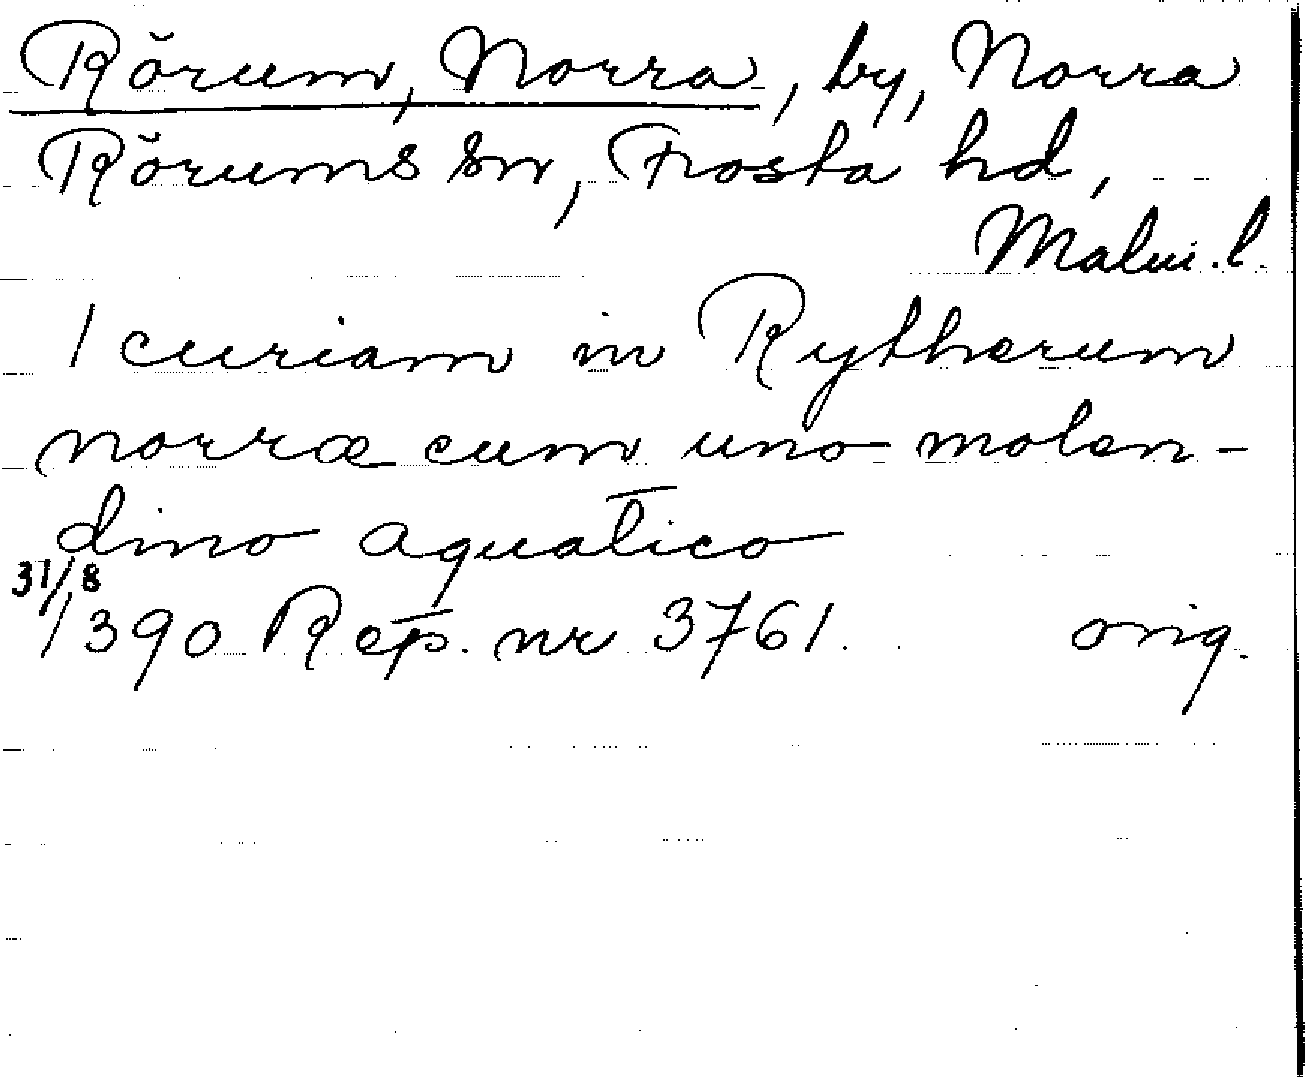 Rörum, Norra, by, Norra
Rörums sn, Frosta hd,
Malm. l.
1 curiam in Rytherum
norræ cum uno molen-
dino aquatico
31/8
1390 Rep. nr 3761. orig.